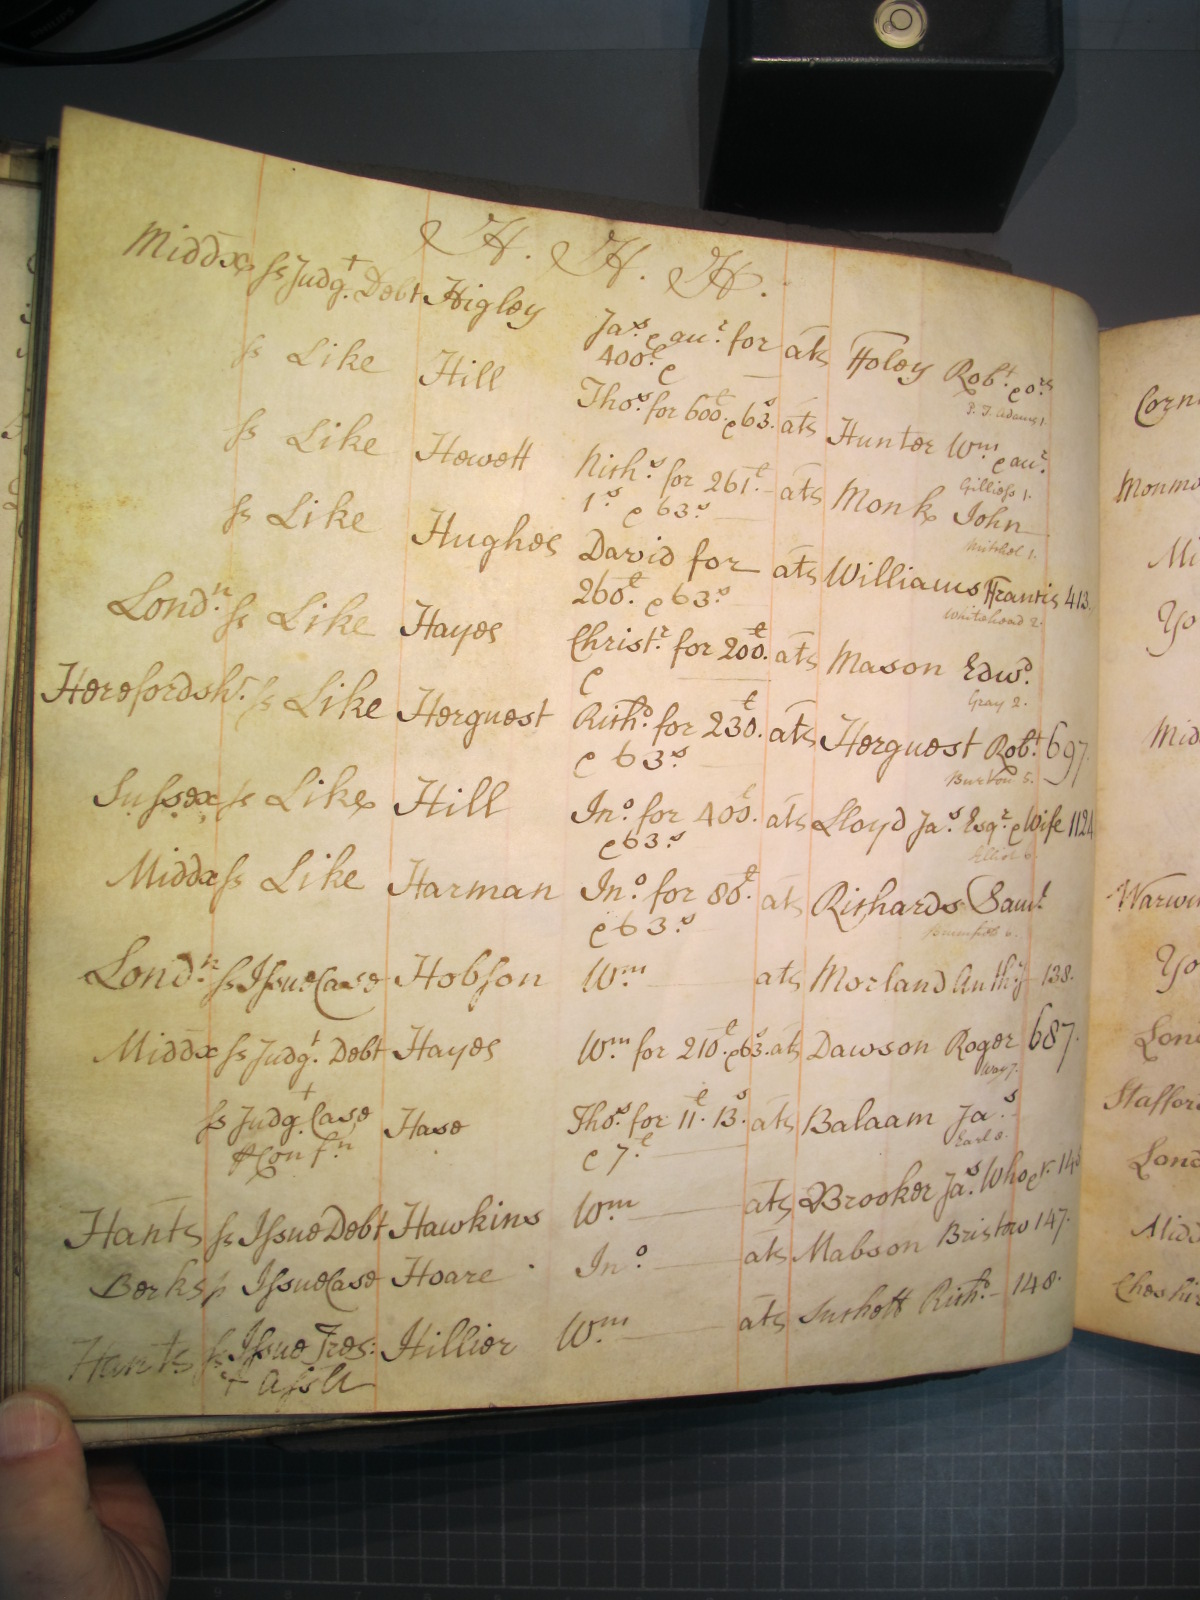 H. H. H.
Middx ss Judgt. Debt Higley Jas. & anr. for ats Ffoley Robt. & ors
400£ &
P. J. Adams 1.
ss Like Hill Thos. for 600£. & 63s. ats Hunter Wm & anr.
Gilliess 1.
ss Like Hewett Nichs. for 261£. ats Monk John
1s & 63s
Mitchel 1.
ss Like Hughes David for ats Williams Ffrancis 413.
260£. & 63s.
Whitehead 2.
Londn. ss Like Hayes Christr. for 200£. ats Mason Edwd.
&
Gray 2.
Herefordshr. ss Like Herguest Richd. for 230£. ats Herguest Robt. 697
& 63s.
Burton 5.
Sussex ss Like Hill Jno. for 400£. ats Lloyd Jas. Esqr. & Wife 1124
& 63s
Elliot 6.
Middx ss Like Harman Jno. for 80£. ats Richards Saml.
& 63s.
Londn. ss Issue Case Hobson Wm. ats Morland Anthy 138.
Middx ss Judgt. Debt Hayes Wm for 210£. & 63s. ats Dawson Roger 687.
Way 7.
ss Judgt. Case Hase Thos. for 11£. 13s. ats Balaam Jas.
& Con fn & 7£
Earl 8.
Hants ss Issue Debt Hawkins Wm. ats Brooker Jas. Who &c.
Berks ss Issue Case Hoare Jno. ats Mabson Bristow 147.
Hants ss Issue Tres: Hillier Wm. ats Suchett Richd. 148.
+ Asslt
Corn
Monmo
Mi
Yo
Mid
Warwi
Yo
Lond
Stafford
Lond
Midd
Cheshir